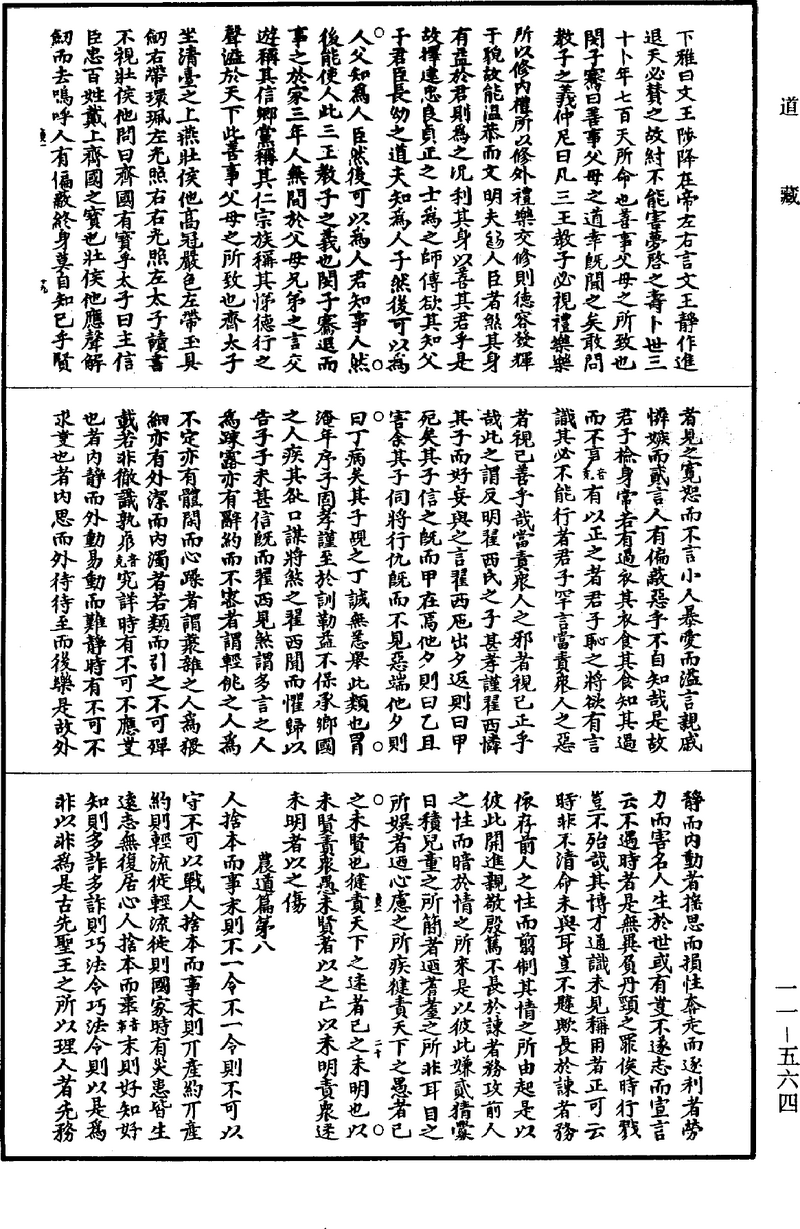 道藏
下雅曰文王陟降在帝左右言文王靜作進
退天必贊之故紂不能害夢啓之壽卜世三
十卜年七百天所命也善事父母之所致也
閔子騫曰善事父母之道幸旣聞之矣敢問
教子之義仲尼曰凡三王教子必視禮樂樂
所以修內禮所以修外禮樂交修則德容發輝
于貌故能溫恭而文明夫爲人臣者煞其身
有益於君則爲之況利其身以善其君乎是
故擇建忠良貞正之士爲之師傅欲其知父
子君臣長幼之道夫知爲人子然後可以爲
人父知爲人臣然後可以爲人君知事人然
後能使人此三王教子之義也閔子騫退而
事之於家三年人無間於父母兄弟之言交
遊稱其信鄉黨稱其仁宗族稱其悌德行之
聲溢於天下此善事父母之所致也齊太子
坐清臺之上燕莊侯他高冠嚴色左帶玉具
劒右帶環珮左光照右右光照左太子讀書
不視莊侯他問曰齊國有寳乎太子曰主信
臣忠百姓戴上齊國之寳也莊侯他應聲解
劒而去嗚呼人有偏蔽終身莫自知已乎賢
者見之寛恕而不言小人暴愛而溢言親戚
憐嫉而貳言人有偏蔽惡乎不自知哉是故
君子檢身常若有過衣其衣食其食知其過
而不
有以正之者君子恥之將欲有言
識其必不能行者君子罕言當責衆人之惡
者視己善乎哉當責衆人之邪者視己正乎
哉此之謂反明翟西氏之子甚孝謹翟西憐
其子而好妄與之言翟西旦出夕返則曰甲
死矣其子信之旣而甲在焉他夕則曰乙且
害余其子伺將行仇旣而不見惡端他夕則
曰丁病矣其子覗之丁誠無恙舉此類也累
淹年序子固孝謹至於訓勒益不保承鄉國
之人疾其欲口謀將煞之翟西聞而懼歸以
告子子未甚信旣而翟西見煞謂多言之人
爲疎露亦有辭約而不密者謂輕佻之人爲
不定亦有體閑而心躁者謂叢雜之人爲猥
細亦有外潔而內濁者若類而引之不可殫
載若非徹識孰
究詳時有不可不應業
也者內靜而外動易動而難靜時有不可不
求業也者內思而外待待至而後樂是故外
靜而內動者搖思而損性奔走而逐利者勞
力而害名人生於世或有業不遂志而宣言
云不遇時者是無異負丹頸之罪俟時行戮
豈不殆哉其博才通識未見稱用者正可云
時非不淸命未與耳豈不韙歟長於諫者務
依存前人之性而翦制其情之所由起是以
彼此開進親敬殷篤不長於諫者務攻前人
之性而暗於情之所來是以彼此嫌貳猜釁
日積兒童之所簡者迺耆耋之所非耳目之
所娛者迺心慮之所疾徤責天下之愚者已
之未賢也徤責天下之迷者已之未明也以
未賢責衆愚未賢者以之亡以未明責衆迷
未明者以之傷
農道篇第八
人捨本而事末則不一令不一令則不可以
守不可以戰人捨本而事末則丌產約丌產
約則輕流徙輕流徙則國家時有災患皆生
遠志無復居心人捨本而事末則好知好
知則多詐多詐則巧法令巧法令則以是爲
非以非爲是古先聖王之所以理人者先務
一一—五六四